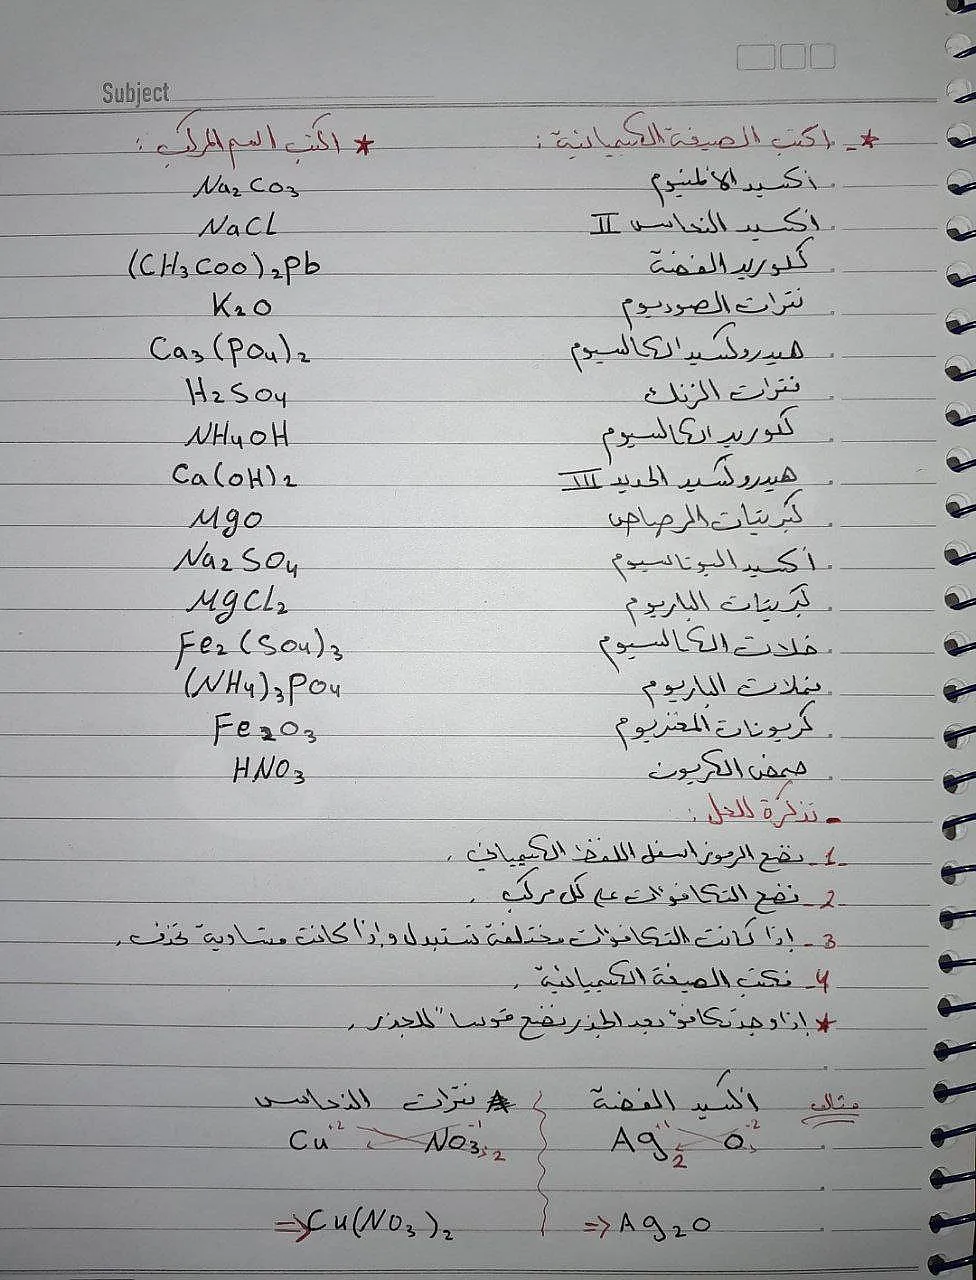 Subject
* - اكتب الصيغة الكيميائية :
. أكسيد الألمنيوم
. أكسيد النحاس II
. كلوريد الفضة
. نترات الصوديوم
. هيدروكسيد الكالسيوم
. نترات الزنك
. كلوريد الكالسيوم
. هيدروكسيد الحديد III
. كبريتات الرصاص
. أكسيد البوتاسيوم
. كبريتات الباريوم
. خلات الكالسيوم
. نملات الباريوم
. كربونات المغنزيوم
. حمض الكربون
* اكتب اسم المركب :
Na2CO3
NaCl
(CH3COO)2Pb
K2O
Ca3(PO4)2
H2SO4
NH4OH
Ca(OH)2
MgO
Na2SO4
MgCl2
Fe2(SO4)3
(NH4)3PO4
Fe2O3
HNO3
- تذكرة للحل :
1- نضع الرموز اسفل اللفظ الكيميائي .
2- نضع التكافؤات على كل مركب .
3- إذا كانت التكافؤات مختلفة تستبدل وإذا كانت متساوية تحذف .
4- نكتب الصيغة الكيميائية .
* إذا وجد تكافؤ بعد الجذر نضع قوساً للجذر .
مثال
أكسيد الفضة
Ag+1 2 O-2
=> Ag2O
* نترات النحاس
Cu+2 NO3-1 2
=> Cu(NO3)2